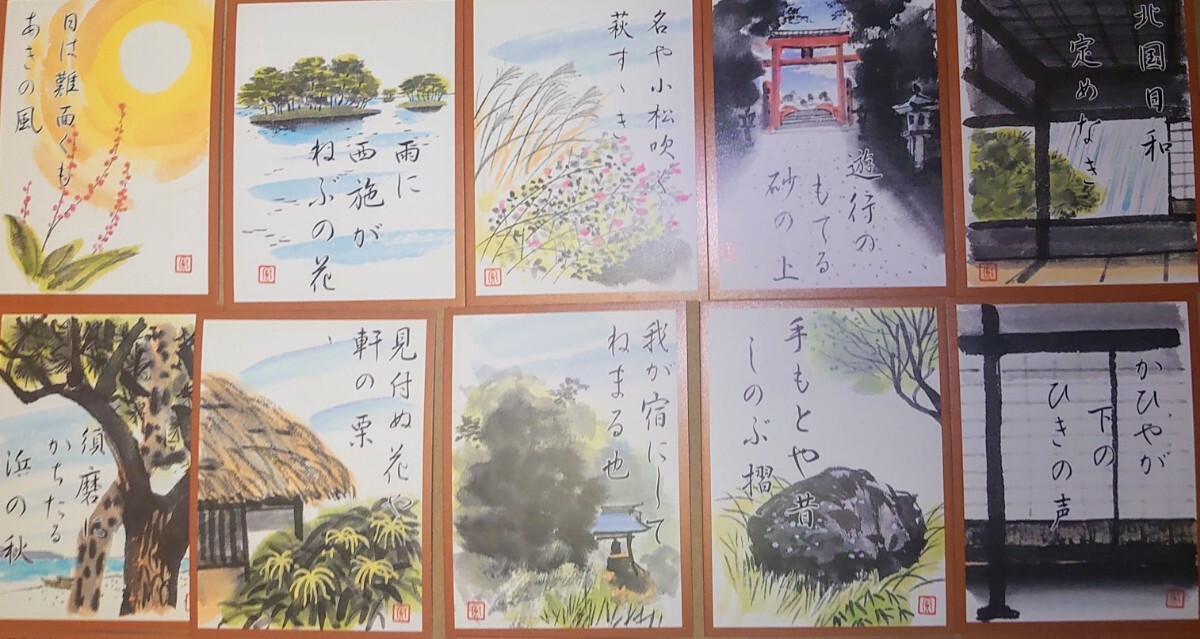 日は難面くも
あきの風
雨に
西施が
ねぶの花
名や小松吹く
萩すゝき
遊行の
もてる
砂の上
北国日和
定めなき
須磨に
かちたる
浜の秋
見付ぬ花や
軒の栗
我が宿にして
ねまる也
手もとや昔
しのぶ摺
かひやが
下の
ひきの声